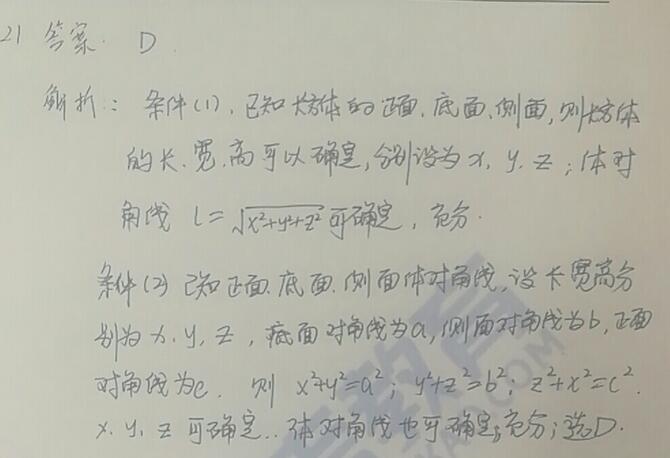 21 答案. D.
解析: 条件(1), 已知长方体的正面、底面、侧面, 则长方体
的长、宽、高可以确定, 分别设为 x, y, z; 体对
角线 L=√x²+y²+z² 可确定, 充分.
条件(2) 已知正面、底面、侧面体对角线, 设长宽高分
别为 x, y, z, 底面对角线为a, 侧面对角线为b, 正面
对角线为c. 则 x²+y²=a²; y²+z²=b²; z²+x²=c².
x, y, z 可确定.. 体对角线也可确定; 充分; 选D.
教育